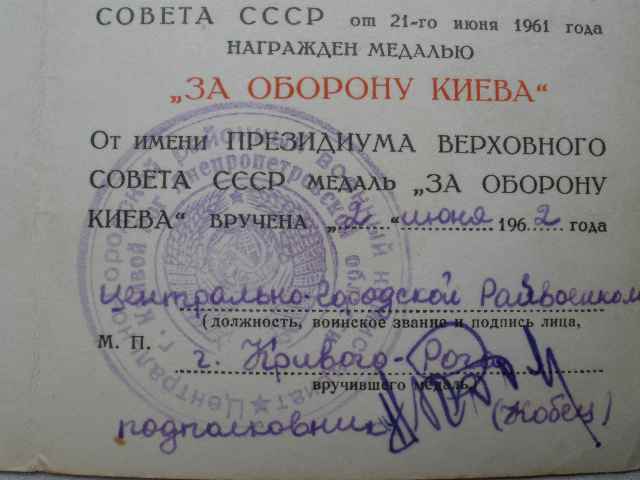 СОВЕТА СССР от 21-го июня 1961 года
НАГРАЖДЕН МЕДАЛЬЮ
„ЗА ОБОРОНУ КИЕВА“
От имени ПРЕЗИДИУМА ВЕРХОВНОГО
СОВЕТА СССР медаль „ЗА ОБОРОНУ
КИЕВА“ вручена „2“ июня 1962 года
Центрально-Городской Райвоенком
(должность, воинское звание и подпись лица,
М. П.
г. Кривого-Рога
вручившего медаль)
подполковник
(Кобец)